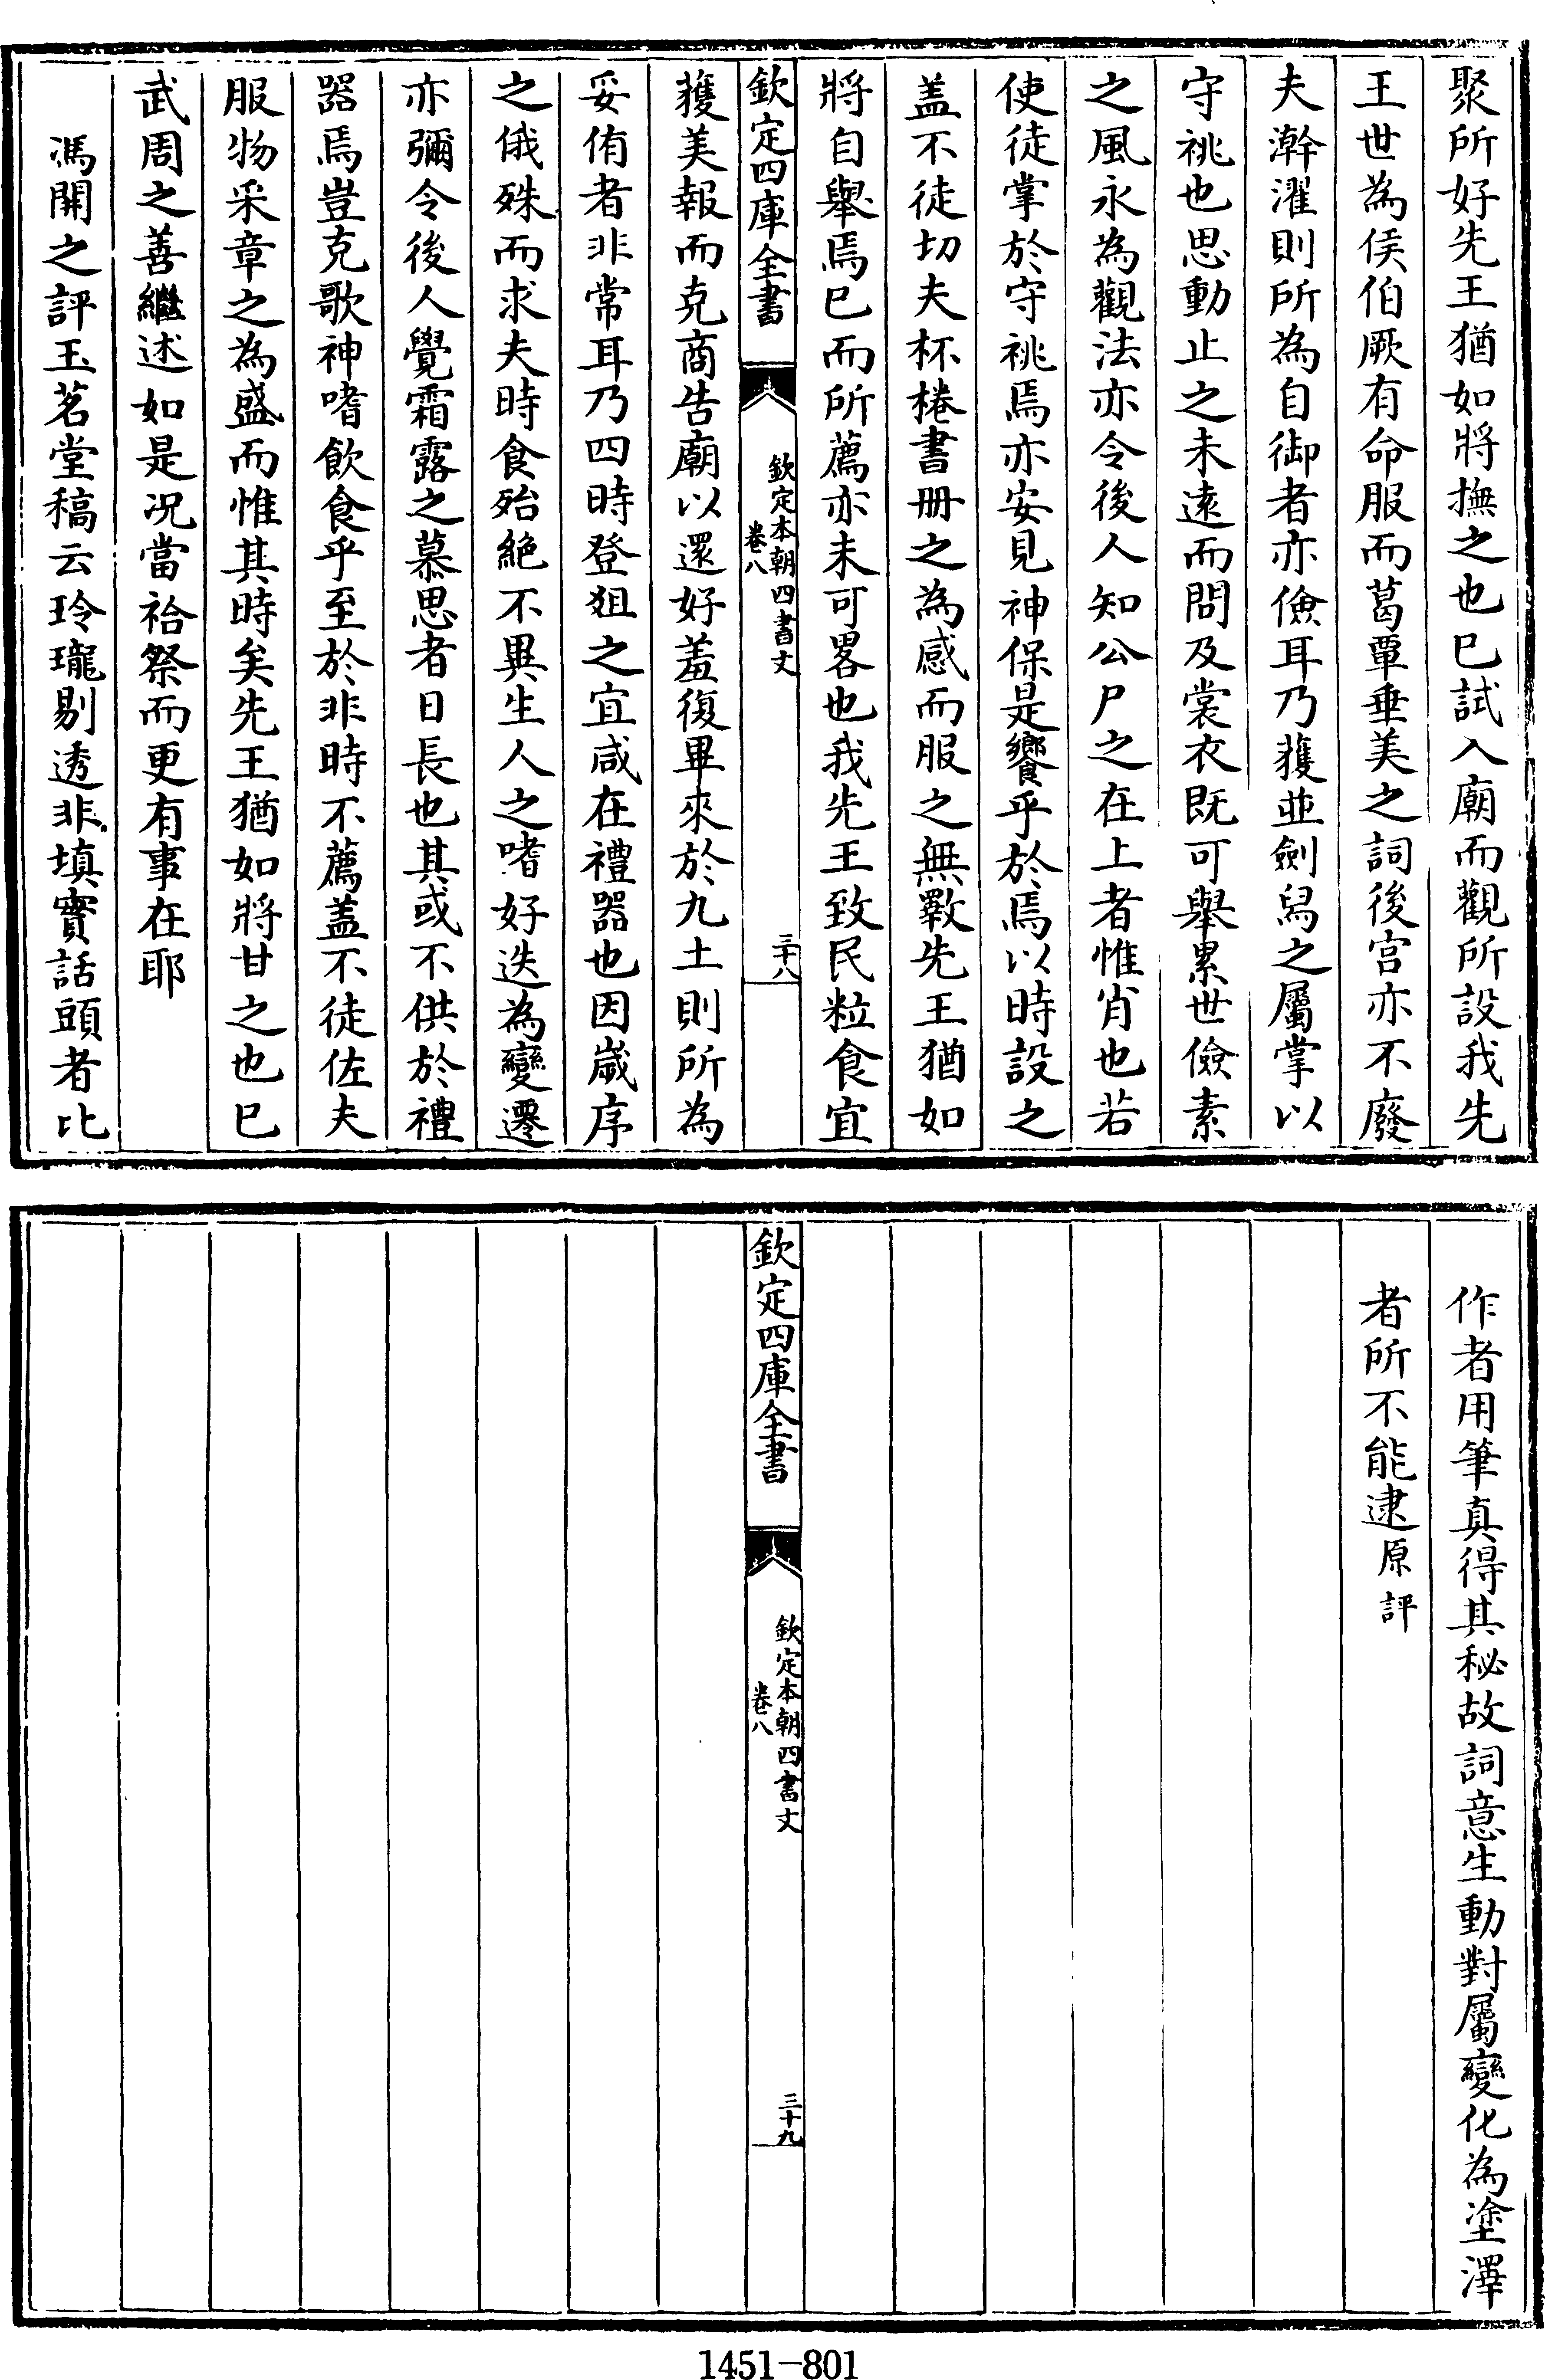 聚所好先王猶如將撫之也已試入廟而觀所設我先
王世為侯伯厥有命服而葛覃垂美之詞後宫亦不廢
夫澣濯則所為自御者亦儉耳乃䕶並劍舄之屬掌以
守祧也思動止之未遠而問及裳衣既可舉累世儉素
之風永為觀法亦令後人知公尸之在上者惟肖也若
使徒掌於守祧焉亦安見神保是饗乎於焉以時設之
盖不徒切夫杯棬書册之為感而服之無斁先王猶如
將自舉焉已而所薦亦未可畧也我先王致民粒食宜
欽定四庫全書
欽定本朝四書文
卷八
三十八
獲美報而克商告廟以還好羞復畢來於九土則所為
妥侑者非常耳乃四時登俎之宜咸在禮器也因嵗序
之俄殊而求夫時食殆絶不異生人之嗜好迭為變遷
亦彌令後人覺霜露之慕思者日長也其或不供於禮
器焉豈克歌神嗜飲食乎至於非時不薦盖不徒佐夫
服物采章之為盛而惟其時矣先王猶如將甘之也已
武周之善繼述如是况當祫祭而更有事在耶
馮開之評玉茗堂稿云玲瓏剔透非填實話頭者比
作者用筆真得其秘故詞意生動對屬變化為塗澤
者所不能逮原評
欽定四庫全書
欽定本朝四書文
卷八
三十九
1451-801